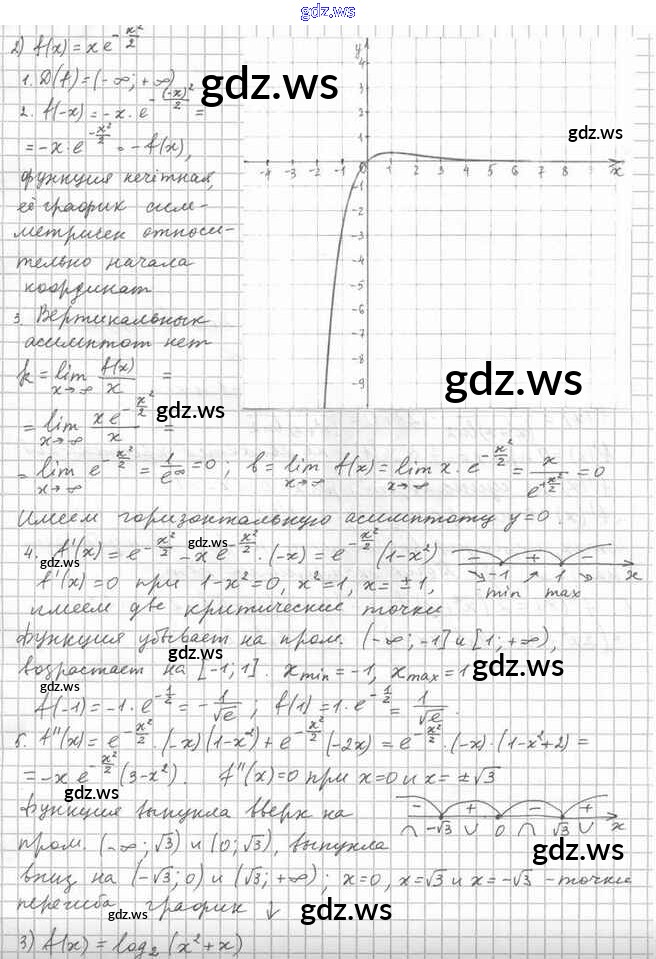 gdz.ws
2) f(x) = x e^{-x²/2}
1. D(f) = (-∞; +∞)
gdz.ws
2. f(-x) = -x · e^{-(-x)²/2} =
= -x · e^{-x²/2} = -f(x),
gdz.ws
функция нечётная,
её график сим-
метричен относи-
тельно начала
координат
y
4
3
2
1
-3 -2 -1 0 1 2 3 4 5 6 7 8 x
-1
-2
-3
-4
-5
-6
-7
-8
-9
3. Вертикальных
асимптот нет
k = lim_{x→∞} f(x)/x =
gdz.ws
= lim_{x→∞} x e^{-x²/2}/x =
gdz.ws
= lim_{x→∞} e^{-x²/2} = 1/e^∞ = 0; b = lim_{x→∞} f(x) = lim_{x→∞} x · e^{-x²/2} = x/e^{+x²/2} = 0
Имеем горизонтальную асимптоту y=0.
4. f'(x) = e^{-x²/2} - x e^{-x²/2} · (-x) = e^{-x²/2} (1-x²)
- + -
-1 1 x
min max
f'(x) = 0 при 1-x² = 0, x² = 1, x = ±1,
имеем две критические точки
функция убывает на пром. (-∞; -1] и [1; +∞),
gdz.ws
возрастает на [-1; 1]. x min = -1, x max = 1
gdz.ws
gdz.ws
f(-1) = -1 · e^{-1/2} = -1/√e; f(1) = 1 · e^{-1/2} = 1/√e.
5. f''(x) = e^{-x²/2} · (-x)(1-x²) + e^{-x²/2} (-2x) = e^{-x²/2} · (-x) · (1-x²+2) =
= -x e^{-x²/2} (3-x²). f''(x) = 0 при x = 0 и x = ±√3
gdz.ws
- + - +
∩ -√3 ∪ 0 ∩ √3 ∪ x
Функция выпукла вверх на
пром. (-∞; √3) и (0; √3), выпукла
gdz.ws
вниз на (-√3; 0) и (√3; +∞); x=0, x=√3 и x=-√3 - точки
перегиба, график ↓
gdz.ws
gdz.ws
3) f(x) = log₂ (x²+x)